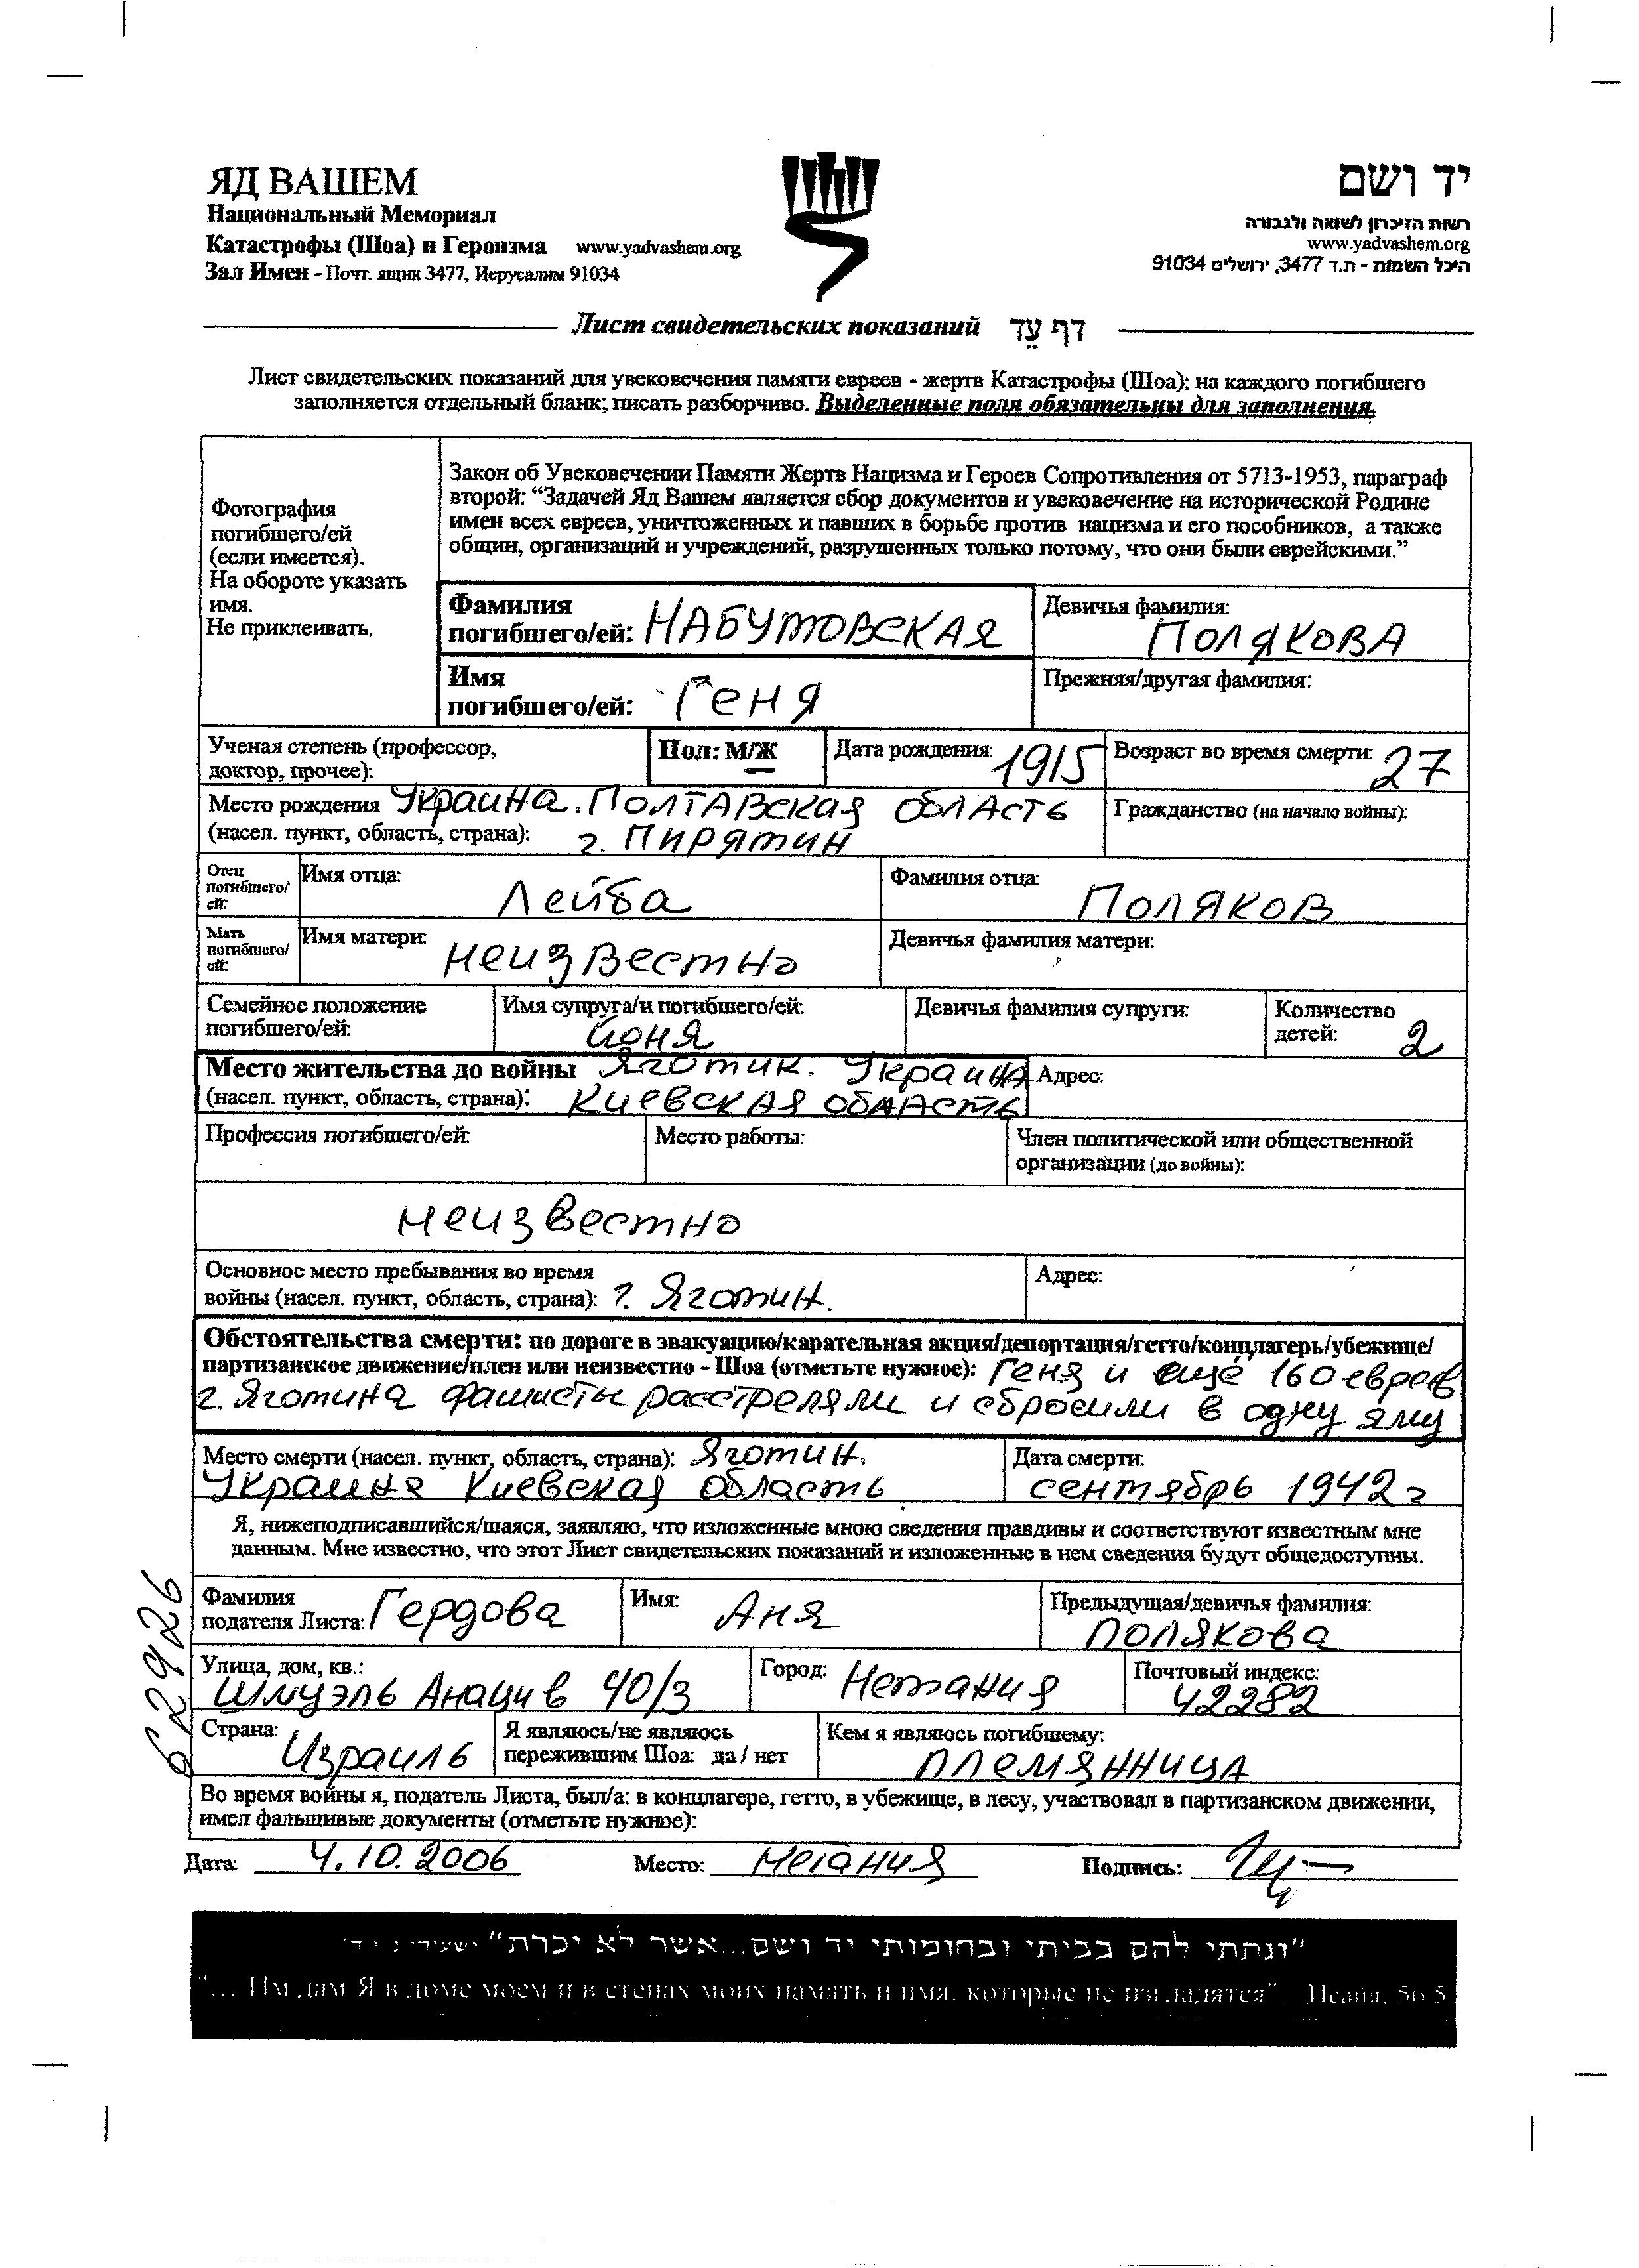 ЯД ВАШЕМ
Национальный Мемориал
Катастрофы (Шоа) и Героизма www.yadvashem.org
Зал Имен - Почт. ящик 3477, Иерусалим 91034
יד ושם
רשות הזיכרון לשואה ולגבורה
www.yadvashem.org
היכל השמות - ת.ד 3477, ירושלים 91034
Лист свидетельских показаний דף עֵד
Лист свидетельских показаний для увековечения памяти евреев - жертв Катастрофы (Шоа); на каждого погибшего
заполняется отдельный бланк; писать разборчиво. Выделенные поля обязательны для заполнения.
Фотография
погибшего/ей
(если имеется).
На обороте указать
имя.
Не приклеивать.
Закон об Увековечении Памяти Жертв Нацизма и Героев Сопротивления от 5713-1953, параграф
второй: “Задачей Яд Вашем является сбор документов и увековечение на исторической Родине
имен всех евреев, уничтоженных и павших в борьбе против нацизма и его пособников, а также
общин, организаций и учреждений, разрушенных только потому, что они были еврейскими.”
Фамилия
погибшего/ей: НАБУТОВСКАЯ
Девичья фамилия:
ПОЛЯКОВА
Имя
погибшего/ей: Геня
Прежняя/другая фамилия:
Ученая степень (профессор,
доктор, прочее):
Пол: М/Ж
Дата рождения: 1915
Возраст во время смерти: 27
Место рождения Украина. ПОЛТАВСКАЯ ОБЛАСТЬ
(насел. пункт, область, страна): г. ПИРЯТИН
Гражданство (на начало войны):
Отец
погибшего/
ей:
Имя отца:
Лейба
Фамилия отца:
ПОЛЯКОВ
Мать
погибшего/
ей:
Имя матери:
неизвестно
Девичья фамилия матери:
Семейное положение
погибшего/ей:
Имя супруга/и погибшего/ей:
Йоня
Девичья фамилия супруги:
Количество
детей: 2
Место жительства до войны Яготин. Украина
(насел. пункт, область, страна): Киевская область
Адрес:
Профессия погибшего/ей:
Место работы:
Член политической или общественной
организации (до войны):
неизвестно
Основное место пребывания во время
войны (насел. пункт, область, страна): г. Яготин.
Адрес:
Обстоятельства смерти: по дороге в эвакуацию/карательная акция/депортация/гетто/концлагерь/убежище/
партизанское движение/плен или неизвестно - Шоа (отметьте нужное): Геня и еще 160 евреев
г. Яготина фашисты расстреляли и сбросили в одну яму
Место смерти (насел. пункт, область, страна): Яготин.
Украина Киевская область
Дата смерти:
сентябрь 1942 г
Я, нижеподписавшийся/шаяся, заявляю, что изложенные мною сведения правдивы и соответствуют известным мне
данным. Мне известно, что этот Лист свидетельских показаний и изложенные в нем сведения будут общедоступны.
Фамилия
подателя Листа: Гердова
Имя: Аня
Предыдущая/девичья фамилия:
Полякова
Улица, дом, кв.:
Шмуэль Анацив 40/3
Город: Нетания
Почтовый индекс:
42282
Страна: Израиль
Я являюсь/не являюсь
пережившим Шоа: да / нет
Кем я являюсь погибшему:
племянница
Во время войны я, податель Листа, был/а: в концлагере, гетто, в убежище, в лесу, участвовал в партизанском движении,
имел фальшивые документы (отметьте нужное):
Дата: 4.10.2006 Место: Нетания Подпись:
"ונתתי להם בביתי ובחומותי יד ושם...אשר לא יכרת"
"... Им дам Я в доме моем и в стенах моих память и имя, которые не изгладятся". Исаия, 56:5